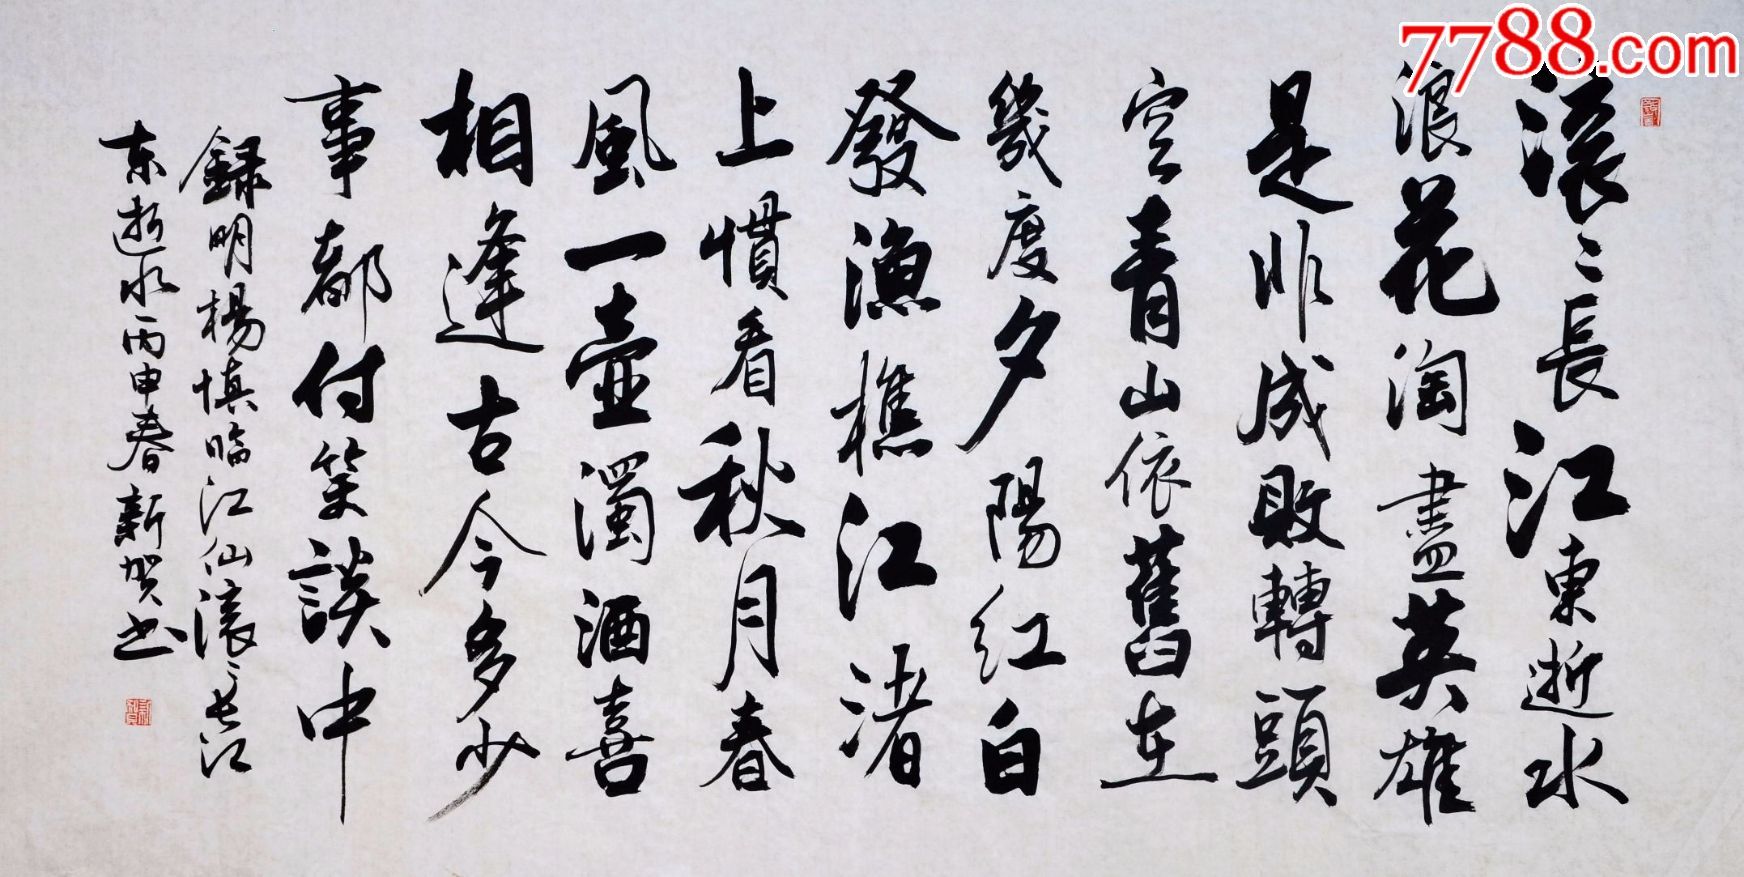 7788.com
滚〻長江東逝水
浪花淘盡英雄
是非成敗轉頭
空青山依舊在
幾度夕陽紅白
發漁樵江渚
上慣看秋月春
風一壺濁酒喜
相逢古今多少
事都付笑談中
録明楊慎臨江仙滚〻长江
东逝水丙申春新贺书